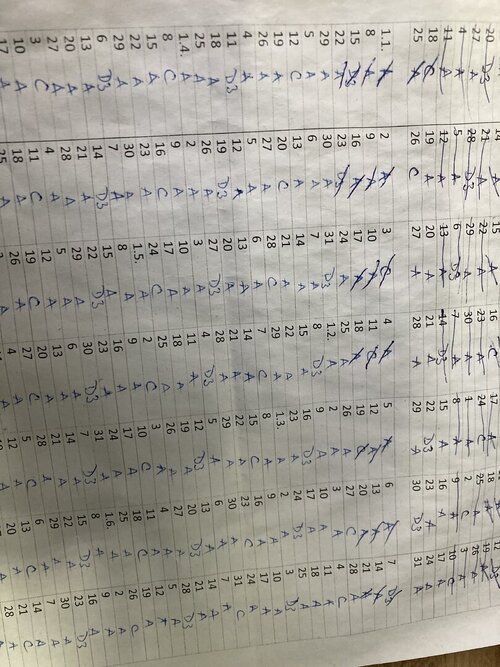 20 D3 21 A 22 A 23 A 24 C 25 A 26 A
4 A 5 A 6 D3 7 A 8 A 9 A 10 C
11 A 12 A 13 A 14 D3 15 A 16 A 17 A
18 C 19 A 20 A 21 A 22 D3 23 A 24 A
25 26 C 27 A 28 A 29 A 30 D3 31 A
1.1. A 2 A 3 C 4 A 5 A 6 A 7 D3
8 A 9 A 10 A 11 C 12 A 13 A 14 A
15 D3 16 A 17 A 18 A 19 C 20 A 21 A
22 A 23 D3 24 A 25 A 26 A 27 C 28 A
29 A 30 A 31 D3 1.2. A 2 A 3 A 4 C
5 A 6 A 7 A 8 D3 9 A 10 A 11 A
12 C 13 A 14 A 15 A 16 D3 17 A 18 A
19 A 20 C 21 A 22 A 23 A 24 D3 25 A
26 A 27 A 28 C 29 A 1.3. A 2 A 3 D3
4 A 5 A 6 A 7 C 8 A 9 A 10 A
11 D3 12 A 13 A 14 A 15 C 16 A 17 A
18 A 19 D3 20 A 21 A 22 A 23 C 24 A
25 A 26 A 27 D3 28 A 29 A 30 A 31 C
1.4. A 2 A 3 A 4 D3 5 A 6 A 7 A
8 C 9 A 10 A 11 A 12 D3 13 A 14 A
15 A 16 C 17 A 18 A 19 A 20 D3 21 A
22 A 23 A 24 C 25 A 26 A 27 A 28 D3
29 A 30 A 1.5. A 2 C 3 A 4 A 5 A
6 D3 7 A 8 A 9 A 10 C 11 A 12 A
13 A 14 D3 15 A 16 A 17 A 18 C 19 A
20 A 21 A 22 D3 23 A 24 A 25 A 26 C
27 A 28 A 29 A 30 D3 31 A 1.6. A 2 A
3 C 4 A 5 A 6 A 7 D3 8 A 9 A
10 A 11 C 12 A 13 A 14 A 15 D3 16 A
17 A 18 A 19 C 20 A 21 A 22 A 23 D3
25 A 26 A 27 C 28 A 29 A 30 A
3 A 4 A 5 C 6 A 7 A
12 A 13 C 14 A
20 A 21 C
28 A